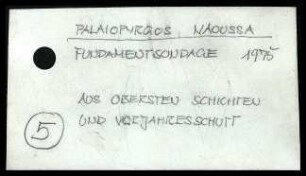 PALAIOPYRGOS, NAOUSSA
FUNDAMENTSONDAGE 1975
AUS OBERSTEN SCHICHTEN
5 UND VORJAHRESSCHUTT